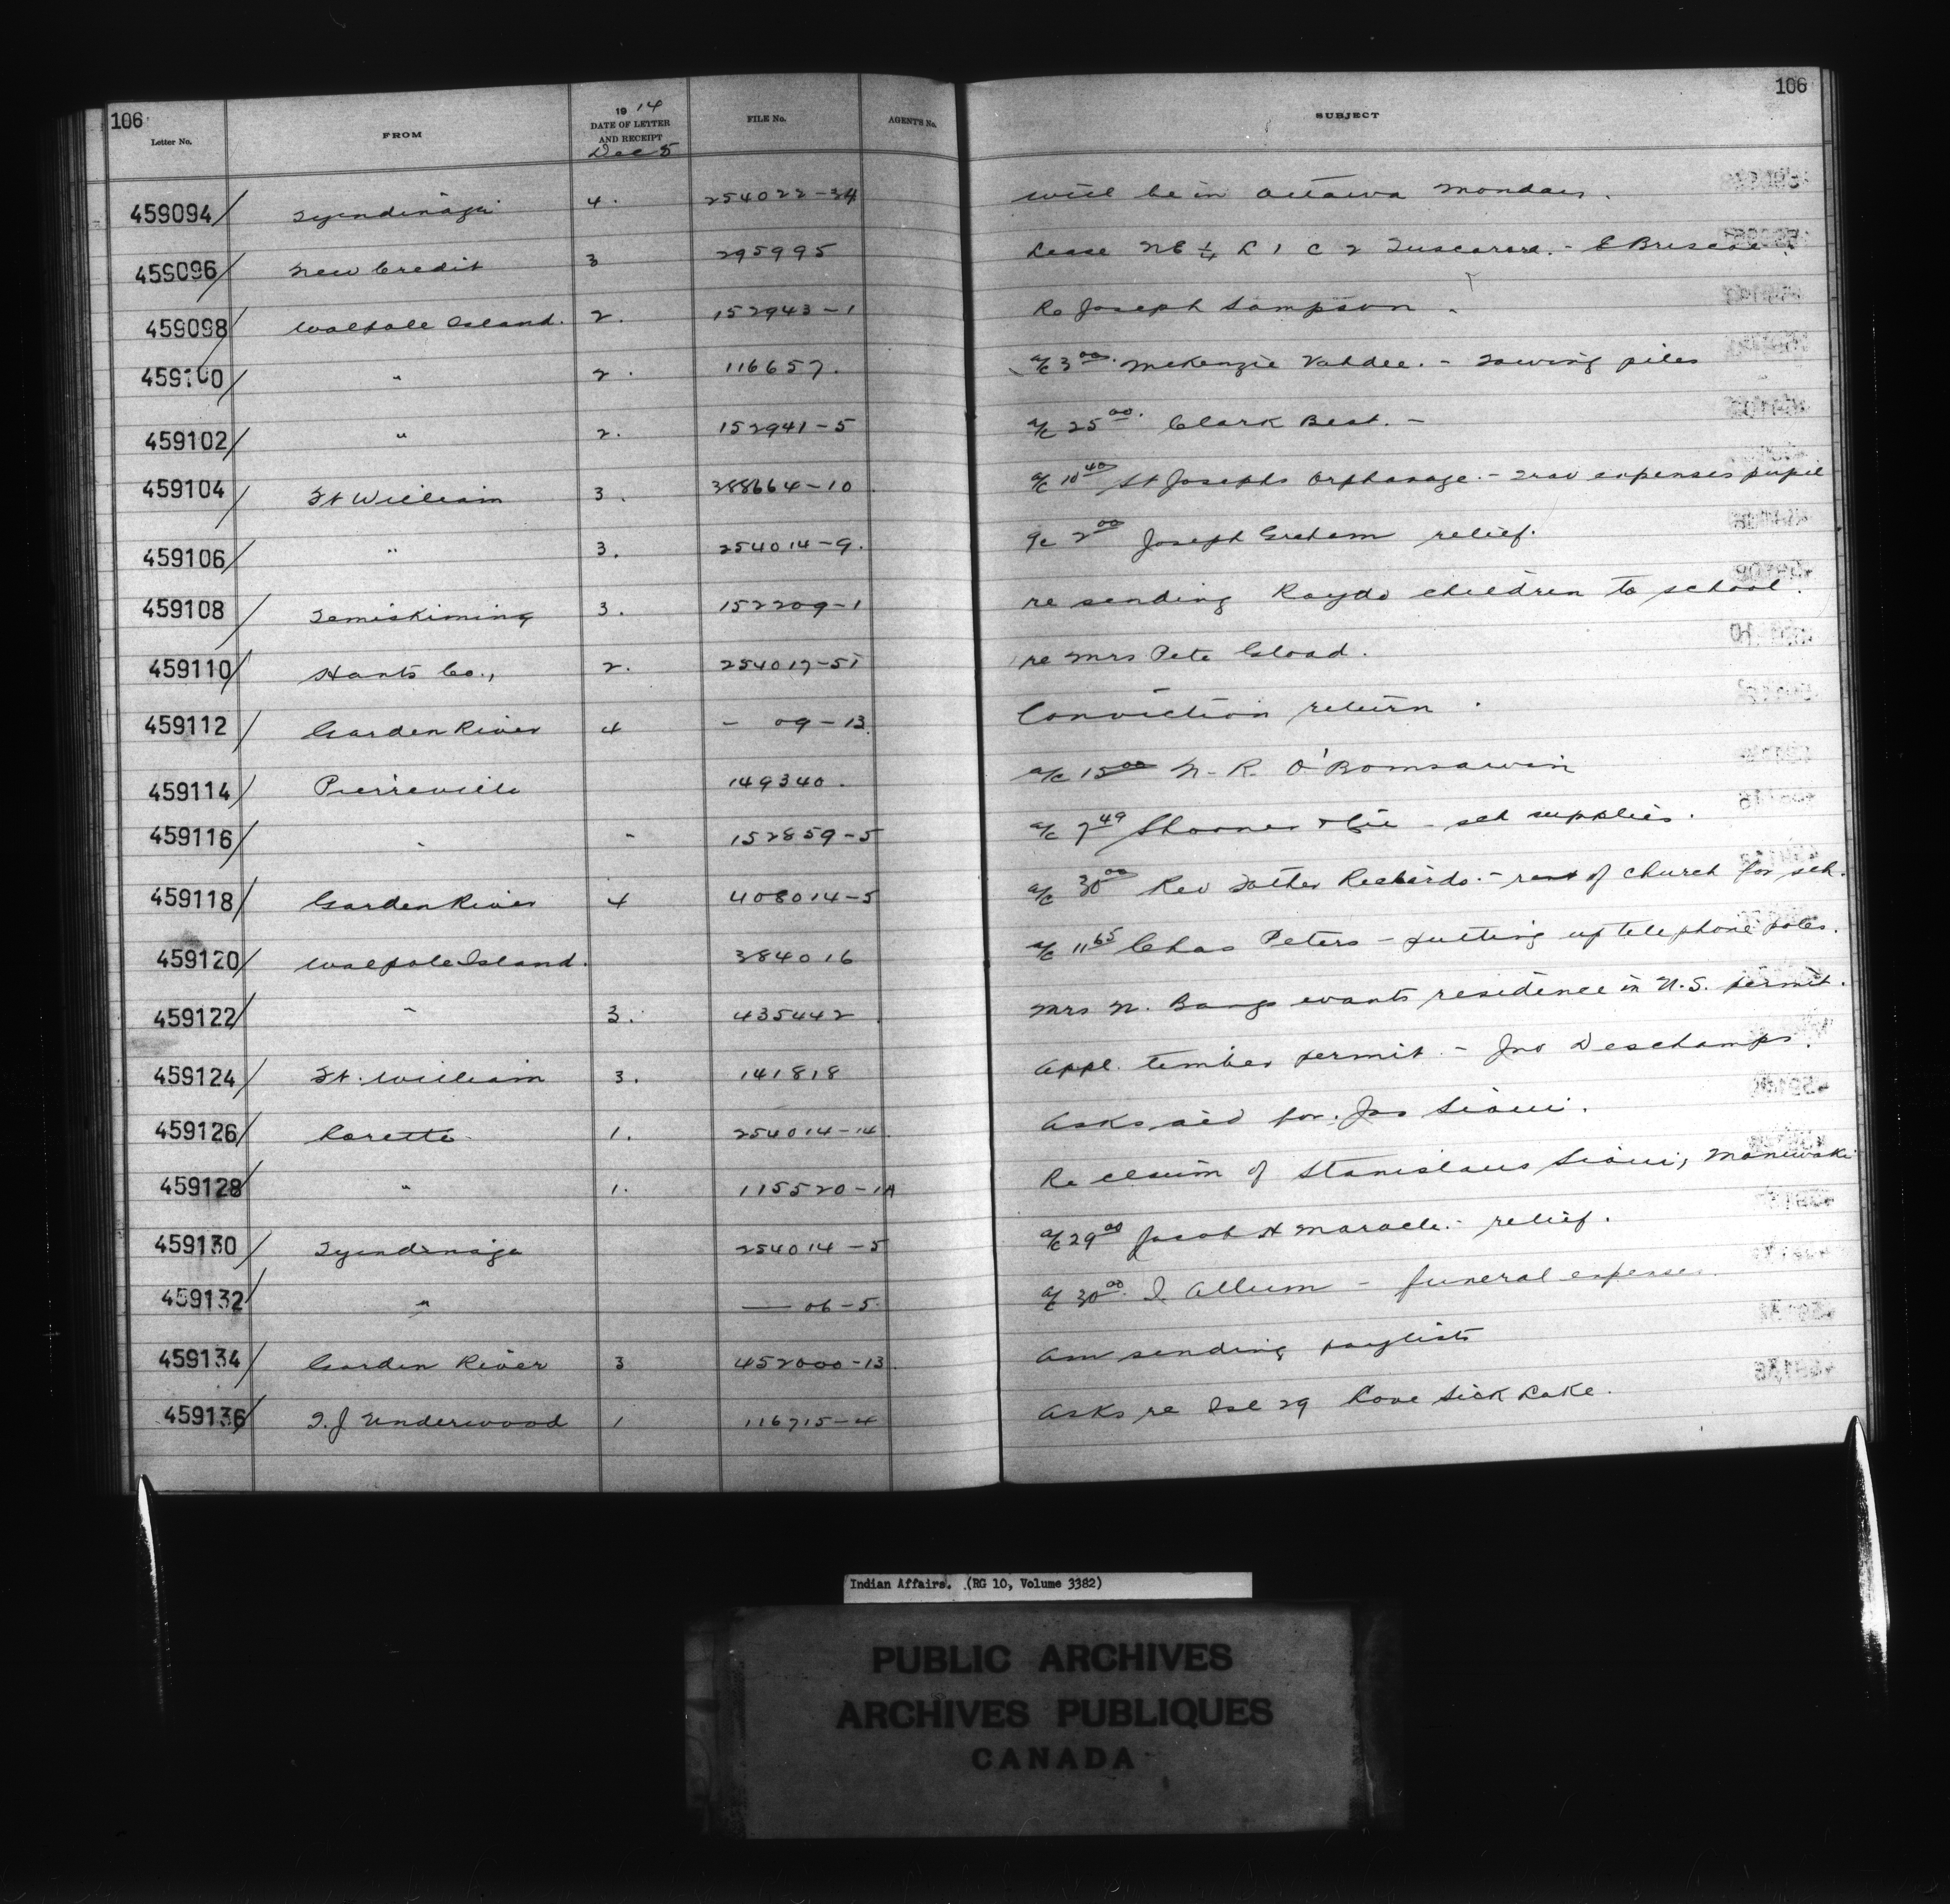 106
106
Letter No. FROM 1914 DATE OF LETTER AND RECEIPT FILE No. AGENT'S No. SUBJECT
Dec 5
459094 Tyendinaga 4. 254022-34 Will be in Ottawa Monday.
459096 New Credit 3 295995 Lease NE ¼ L 1 C 2 Tuscarora. - E Briscoe.
459098 Walpole Island. 2. 152943-1 Re Joseph Sampson.
459100 " 2. 116657. a/c 3 00. McKenzie - Towing piles
459102 " 2. 152941-5 a/c 25 00. Clark Best. -
459104 Ft William 3. 388664-10 a/c 10 40 St Josephs Orphanage. - Trav expenses pupil
459106 " 3. 254014-9. a/c 2 00 Joseph Graham relief.
459108 Temiskiming 3. 152209-1 re sending children to school.
459110 Hants Co., 2. 254017-51 re Mrs Pete Gload.
459112 Garden River 4 - 09-13. Conviction return.
459114 Pierreville 149340. a/c 15 00 N. R. O'Bomsawin
459116 " 152859-5 a/c 7 49 Shooner & Cie - sch supplies.
459118 Garden River 4 408014-5 a/c 30 00 Rev Father Richards. - rent of church for sch.
459120 Walpole Island. 384016 a/c 11 65 Chas Peters - putting up telephone poles.
459122 " 3. 435442 Mrs N. wants residence in U.S. permit.
459124 Ft. William 3. 141818 Appl. timber permit. - Jno Deschamps.
459126 Lorette 1. 254014-14 Asks aid for Jas Sioui.
459128 " 1. 115520-1A Re claim of Stanislaus Sioui, Maniwaki
459130 Tyendinaga 254014-5 a/c 29 00 Jacob H Maracle. - relief.
459132 " — 06-5. a/c 30 00. I. Allum - funeral expenses.
459134 Garden River 3 452000-13. Am sending paylists
459136 T. J Underwood 1 116715-4 Asks re Isl 29 Love Sick Lake.
Indian Affairs. (RG 10, Volume 3382)
PUBLIC ARCHIVES
ARCHIVES PUBLIQUES
CANADA